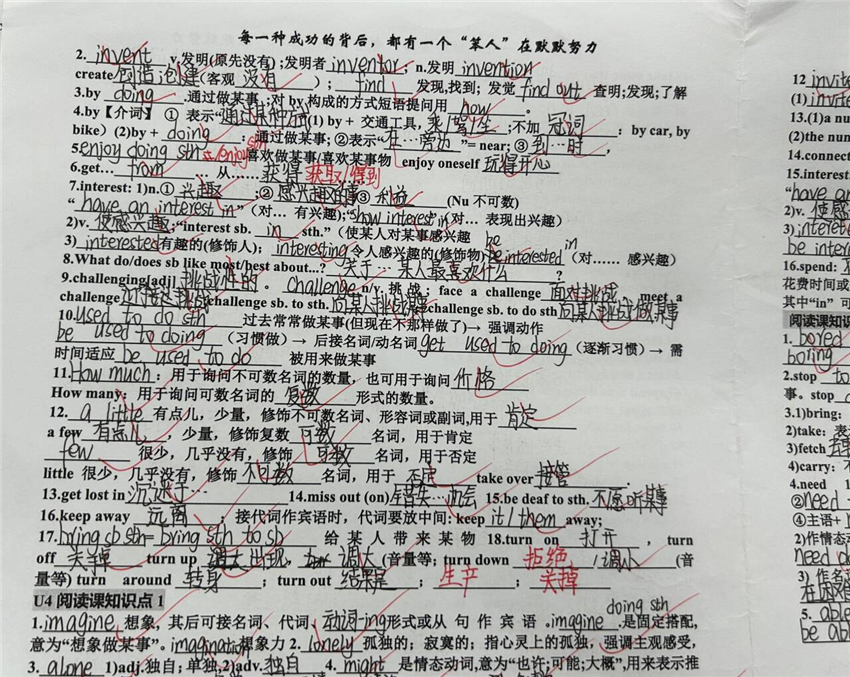 每一种成功的背后，都有一个“笨人”在默默努力
2. invent v.发明(原先没有) ;发明者 inventor ; n.发明 invention
create 创造 创建 (客观 没有 ) ; find 发现,找到; 发觉 find out 查明;发现;了解
3.by doing .通过做某事 ;对 by 构成的方式短语提问用 how 。
4.by【介词】 ① 表示“通过某种方式(1) by + 交通工具, 乘/驾/坐 :不加 冠词 : by car, by
bike）(2)by + doing : 通过做某事; ②表示“在…旁边 ”= near; ③ 到…时 ,
5.enjoy doing sth 喜欢做某事/喜欢某事物 enjoy oneself 玩得开心
6.get… from … 从…… 获得 获取/得到
7.interest: 1)n.① 兴趣 ;② 感兴趣的事 ③ 利益 (Nu 不可数)
“ have an interest in ”（对… 有兴趣);“show interest in(对… 表现出兴趣)
2)v. 使感兴趣;“interest sb. in sth.”（使某人对某事感兴趣
3) interested 有趣的(修饰人); interesting 令人感兴趣的(修饰物) be interested in (对…… 感兴趣)
8.What do/does sb like most/best about...? 关于… 某人最喜欢什么 ?
9.challenging[adj] 挑战性的 。 challenge n/v. 挑 战 ; face a challenge 面对挑战 meet a
challenge 迎接挑战 challenge sb. to sth. 向某人挑战某事 challenge sb. to do sth 向某人挑战做某事
10.used to do sth 过去常常做某事(但现在不那样做了)→ 强调动作
be used to doing (习惯做) → 后接名词/动名词 get used to doing (逐渐习惯) → 需
时间适应 be used to do 被用来做某事
11.How much : 用于询问不可数名词的数量，也可用于询问 价格
How many: 用于询问可数名词的 复数 形式的数量。
12. a little 有点儿，少量，修饰不可数名词、形容词或副词,用于 肯定
a few 有点儿 ，少量，修饰复数 可数 名词，用于肯定
few 很少，几乎没有，修饰 可数 名词，用于否定
little 很少，几乎没有，修饰 不可数 名词，用于 否定 take over 接管 .
13.get lost in 沉迷于… 14.miss out (on) 错失…机会 15.be deaf to sth. 不愿听某事
16.keep away 远离 ；接代词作宾语时，代词要放中间: keep it/them away;
17.bring sb sth= bring sth to sb 给 某 人 带 来 某 物 18.turn on 打开 , turn
off 关掉 turn up 调大 出现, 调大 (音量等; turn down 拒绝 / 调小 (音
量等) turn around 转身 ; turn out 结果是 ; 生产 ; 关掉
U4 阅读课知识点 1
1.imagine 想象，其后可接名词、代词、动词-ing形式或从 句 作 宾 语 。imagine doing sth 是固定搭配,
意为“想象做某事”。imagination 想象力 2. lonely 孤独的；寂寞的；指心灵上的孤独，强调主观感受,
3. alone 1)adj.独自; 单独,2)adv. 独自 4. might 是情态动词,意为“也许;可能;大概”,用来表示推
12 invite
(1) invite
13.(1)a nu
(2)the num
14.connect
15.interest
“have an
2)v. 使感
3) interest
be inter
16.spend:
花费时间或
其中“in” 可
阅读课知识
1. bored
boring
2.stop to
事。stop
3.1)bring:
2)take: 表
3)fetch
4)carry: 不
4.need 1
② need
④主语+
2)作情态动
need do
3) 作名
在困难
5. able
be able